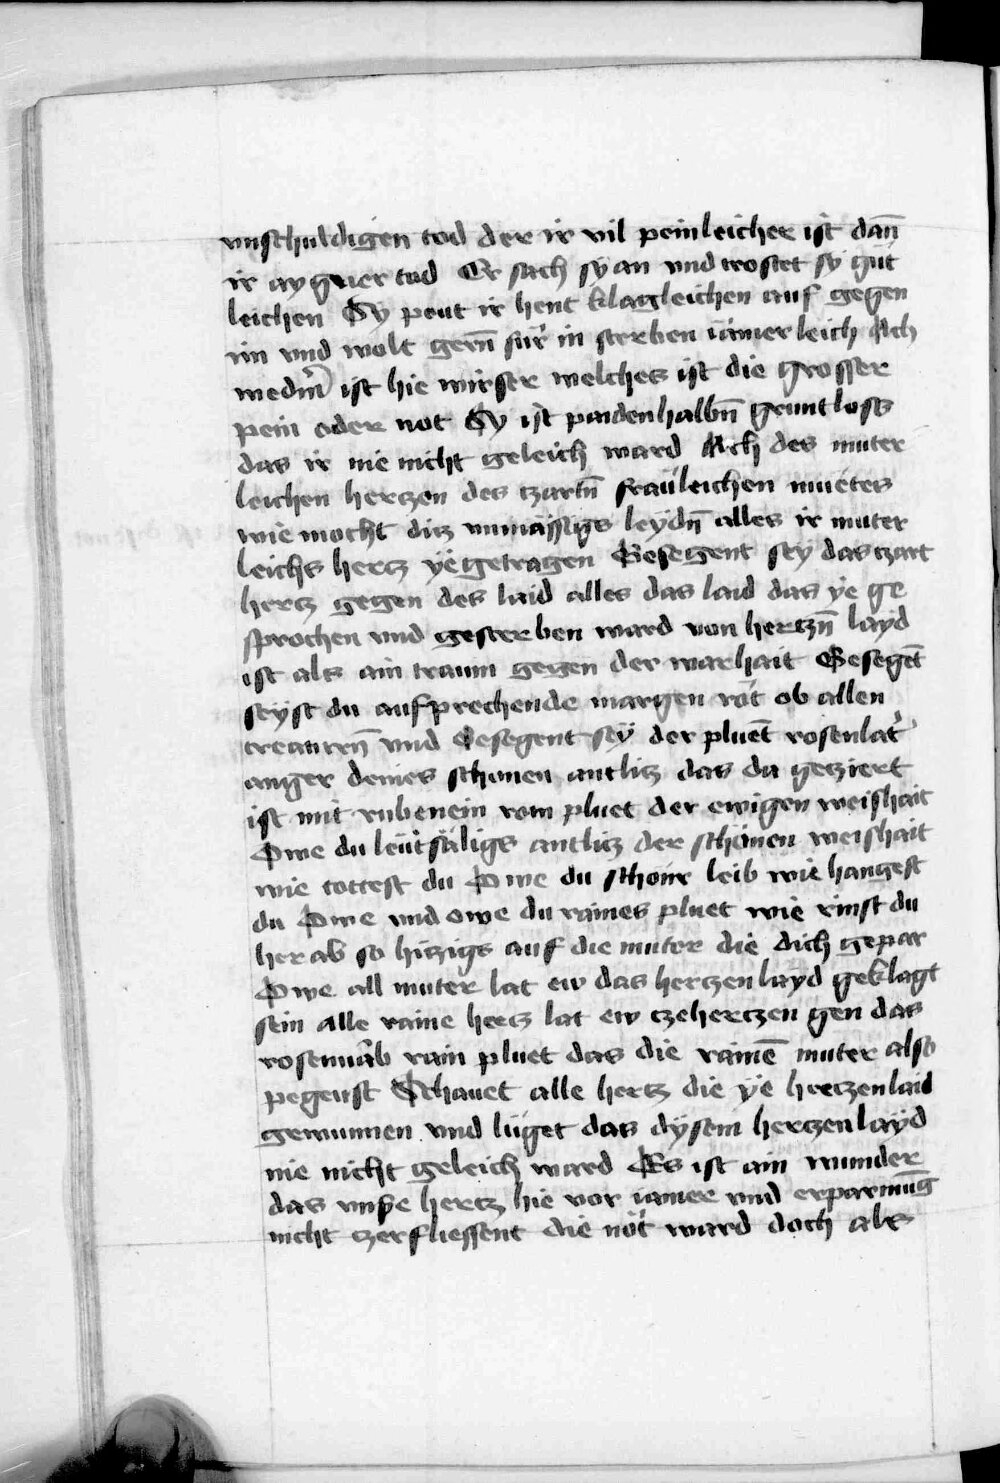 vnschuldigen tod der ir vil peinleicher ist dan̄
ir aygner tod Er sach sy an vnd trostet sy güt
leichen Sy peut ir hent klagleichen auf gegen
im vnd wolt gern̄ für in sterben iämerleich Ach
wedm̄ ist hie wirser welches ist die grosser
pein oder not Sy ist paidenhalbn̄ gruntloss
das ir nie nicht geleich ward Ach des muter
leichen hertzen des tzartn̄ fraüleichen muetes
wie mocht ditz vnmässigs leydn̄ alles ir muter
leichs hertz ye getragen Gesegent sey das tzart
hertz gegen des laid alles das laid das ye ge
sprochen vnd gestorben ward von hertzn̄ layd
ist als ain traum gegen der warhait Gesegēt
seyst du aufprechende margen röt ob allen
creaturn̄ vnd Gesegent sey der pluēt rosenlatˀ
anger deines schonen antlitz das da getziert
ist mit rubenein vom pluet der ewigen weishait
Owe du leütsäligs antlitz der schönen weishait
wie tottest du Owe du schoner leib wie hangest
du Owe vnd owe du raines pluet wie rinst du
her ab so hitzigs auf die muter die dich gepar
Owe all muter lat ew das hertzen layd geklagt
sein alle raine hertz lat ew tzehertzen gen das
rosenuarb rain pluet das die rainē muter also
pegeust Schauet alle hertz die ye hertzenlaid
gewunnen vnd lüget das dysem hertzen layd
nie nicht geleich ward Es ist ain wunder
das vnser hertz hie vor iamer vnd erparmūg
nicht tzerfliessent die nöt ward doch als